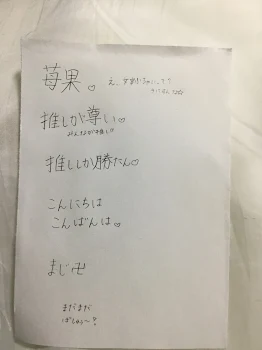 苺果♡
推しが尊い♡
みんなが推し♡
推ししか勝たん♡
こんにちは
こんばんは♡
まじ卍
まだまだ